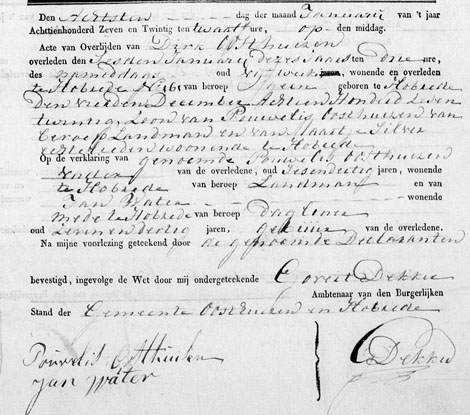 Den Achtsten dag der maand Januarij van 't jaar
Achttienhonderd Zeven en Twintig ten twaalf ure, op den middag.
Acte van Overlijden van Dirk Oosthuizen
overleden den Zesden Januarij dezes Jaars ten Drie ure,
des namiddags oud vijf weeken, wonende en overleden
te Hobrede No van beroep geen geboren te Hobrede
Den vierden December Achtien Honderd Zes en
twintig, Zoon van Pouwelis Oosthuizen van
beroep Landman en van Maartje Silver
Echtelieden woonende te Hobrede
Op de verklaring van genoemde Pouwelis Oosthuizen
Vader van de overledene, oud Zesendertig jaren, wonende
te Hobrede van beroep Landman en van
Jan Water wonende
mede te Hobrede van beroep Dagloner
oud Zevenendertig jaren, gebuur van de overledene.
Na mijne voorlezing geteekend door de genoemde Declaranten
bevestigd, ingevolge de Wet door mij ondergeteekende Govert Dekker
Ambtenaar van den Burgerlijken
Stand der Gemeente Oosthuizen en Hobrede
Pouwelis Osthuisen
Jan Water
G Dekker